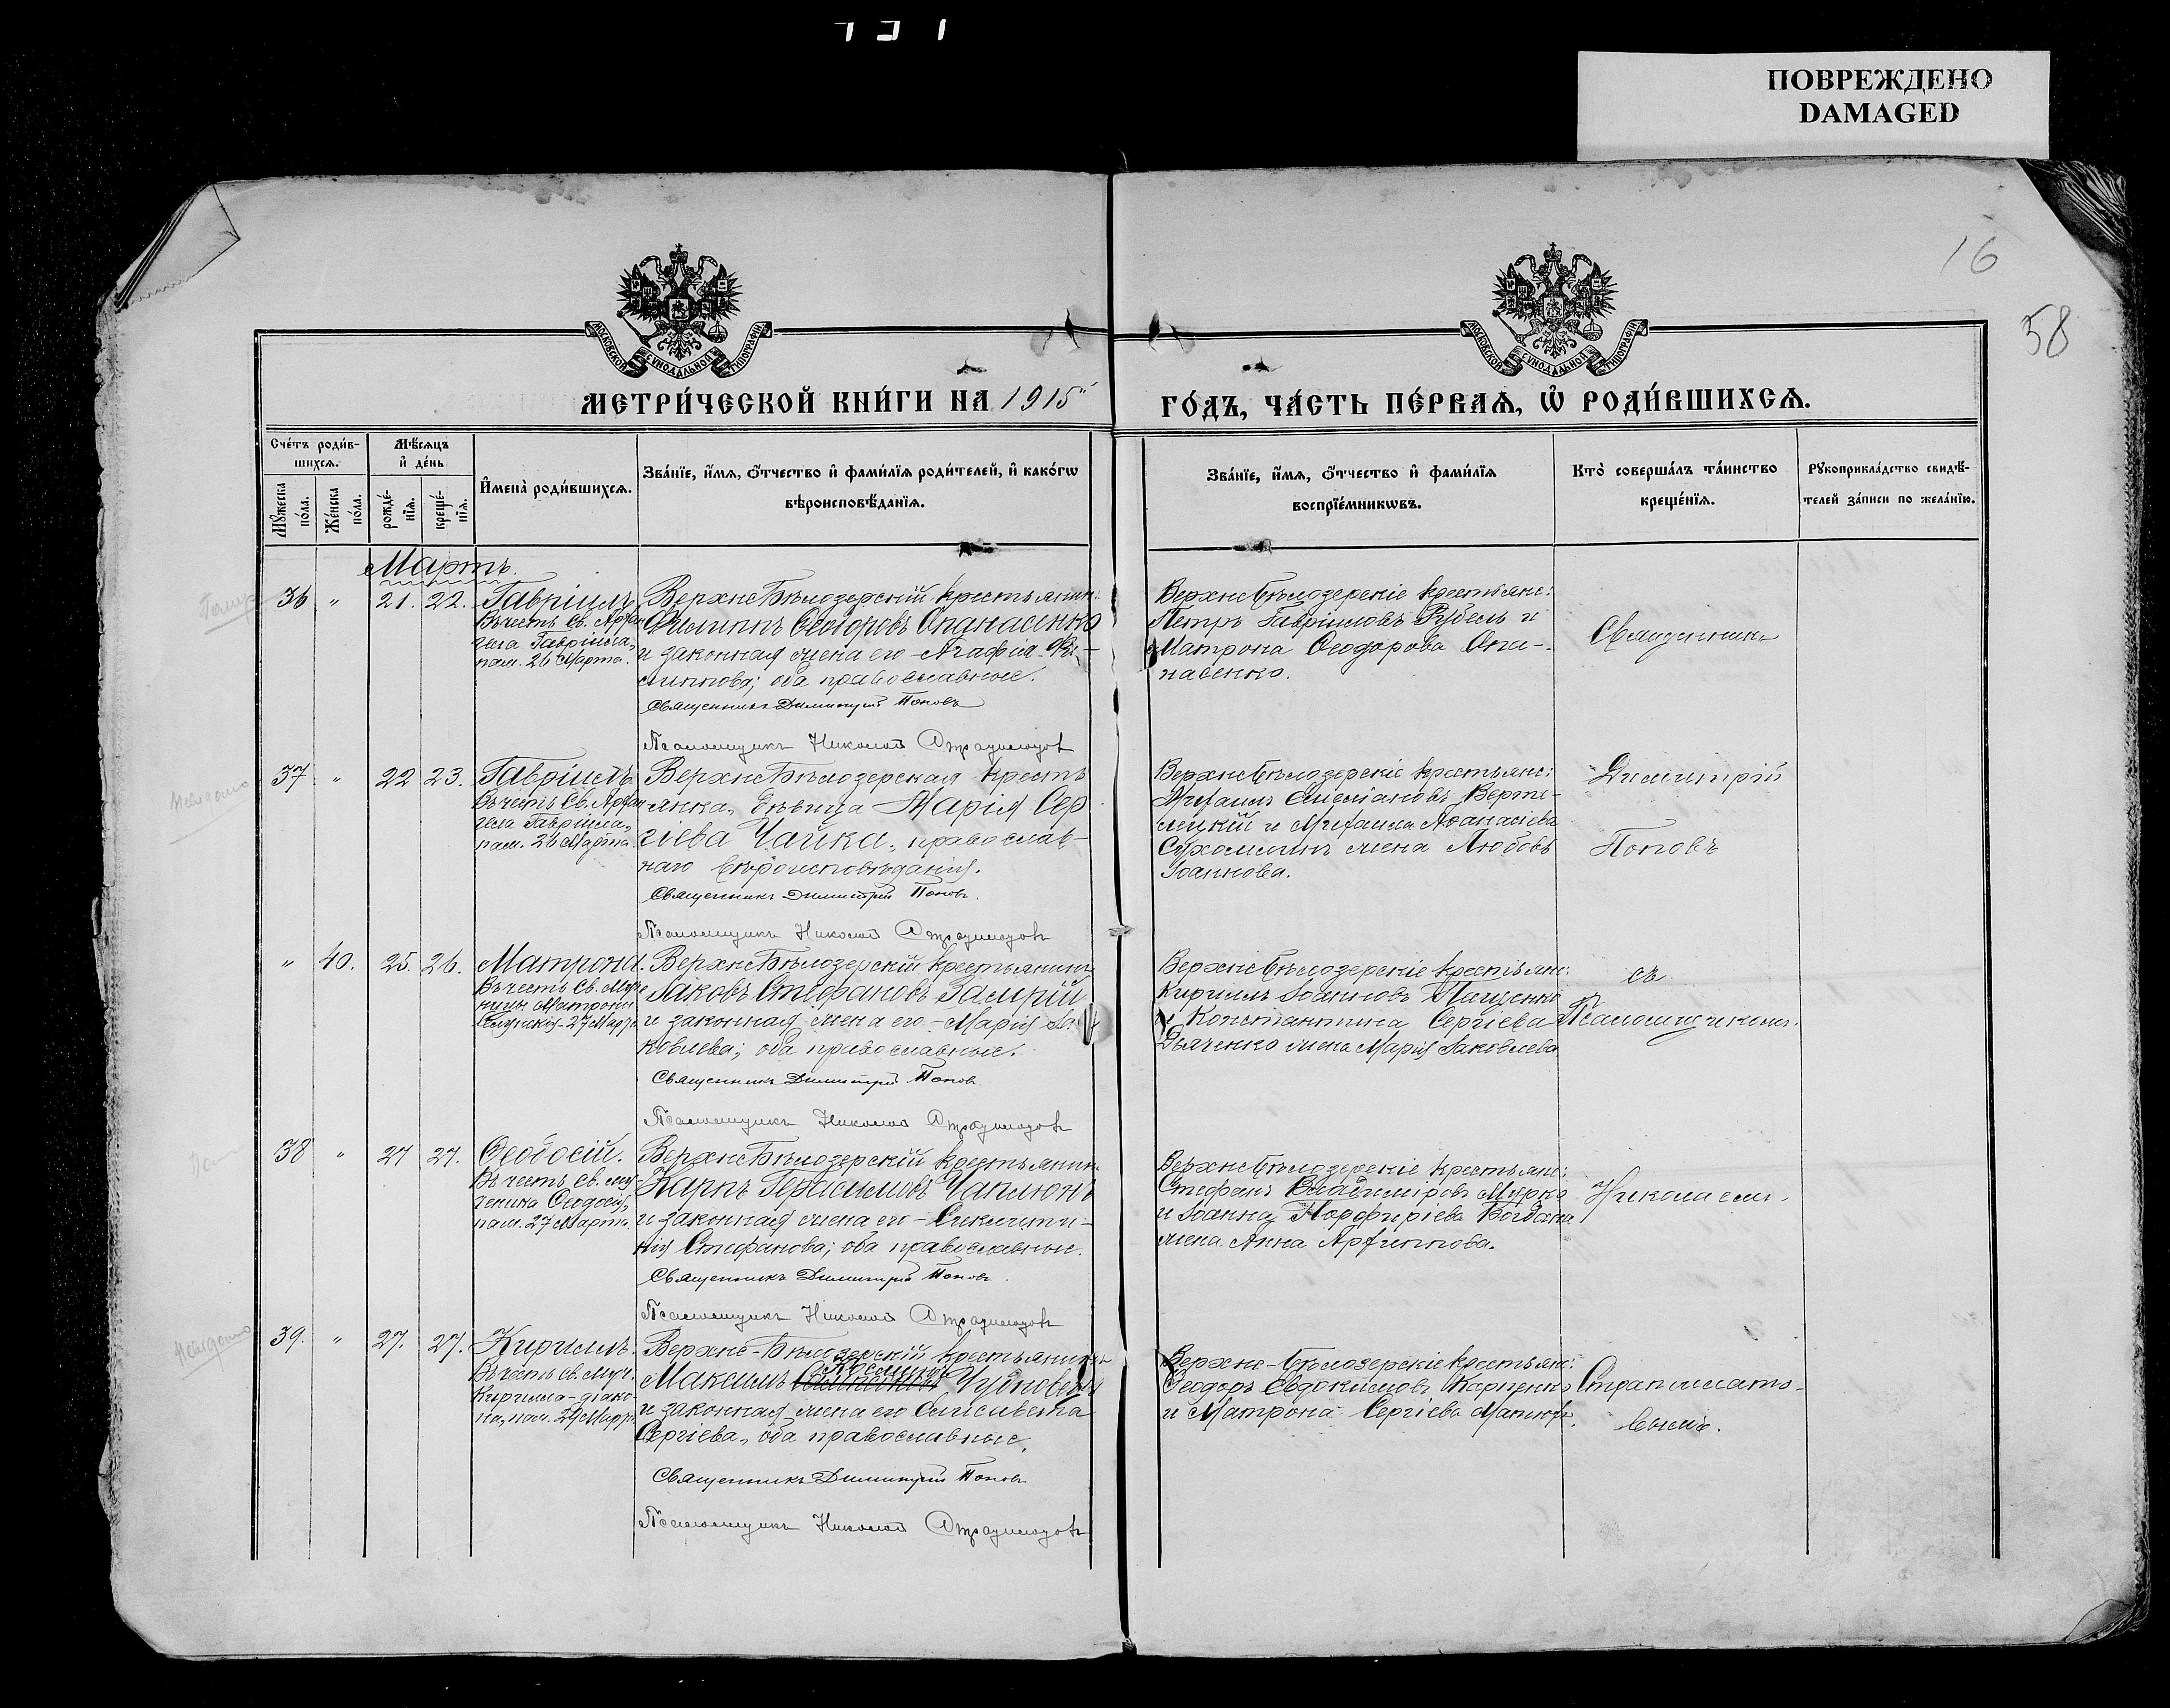 ПОВРЕЖДЕНО
DAMAGED
16
58
МОСКОВСКОЙ СУНОДАЛЬНОЙ ТИПОГРАФІИ
МОСКОВСКОЙ СУНОДАЛЬНОЙ ТИПОГРАФІИ
МЕТРИ́ЧЕСКОЙ КНИ́ГИ НА 1915й
ГО́ДЪ, ЧА́СТЬ ПЕ́РВАѦ, Ѡ҆ РОДИ́ВШИХСѦ.
Сче́тъ роди́в-
шихсѧ.
Мꙋ́жеска по́ла.
Же́нска по́ла.
Мѣ́сѧцъ
и҆ де́нь
рожде́-
нїѧ.
креще́-
нїѧ.
И҆мена̀ роди́вшихсѧ.
Зва́нїе, и҆́мѧ, ѻ҆́тчество и҆ фами́лїѧ роди́телей, и҆ како́гѡ
вѣроисповѣ́данїѧ.
Зва́нїе, и҆́мѧ, ѻ҆́тчество и҆ фами́лїѧ
воспрїе́мникѡвъ.
Кто̀ соверша́лъ та́инство
креще́нїѧ.
Рꙋкоприкла́дство свидѣ́-
телей за́писи по жела́нїю.
Мартъ.
36 " 21. 22. Гавріилъ
Въ честь Св. Архан
гела Гавріила,
пам. 26 Марта.
ВерхнеБѣлозерскій крестьянин:
Филиппъ Ѳеодоровъ Опанасенко
и законная жена его - Агафія Фи-
липпова; оба православные.
Священникъ Димитрій Поповъ
Псаломщикъ Николай
ВерхнеБѣлозерскіе крестьяне:
Петръ Гавріиловъ Рубель и
Матрона Ѳеодорова Опа-
насенко.
Священникъ
37 " 22 23. Гавріилъ
Въ честь Св. Архан
гела Гавріила,
пам. 26 Марта.
ВерхнеБѣлозерская кресть
янка, дѣвица Марія Сер
гіева Чайка, православ-
наго вѣроисповѣданія.
Священникъ Димитрій Поповъ.
Псаломщикъ Николай
ВерхнеБѣлозерскіе крестьяне:
Михаилъ Верте-
лецкій и Михаила Аѳанасіева
Сухомлинъ жена Любовь
Іоаннова.
Димитрій
Поповъ
" 40. 25. 26. Матрона.
Въ честь Св. Муче
ницы Матроны
Селунскія - 27 Марта
ВерхнеБѣлозерскій крестьянинъ
Іаковъ Стефановъ Замрій
и законная жена его - Марія Іа
ковлева; оба православные.
Священникъ Димитрій Поповъ
Псаломщикъ Николай
ВерхнеБѣлозерскіе крестьяне:
Кириллъ Іоанновъ Пащенко
и Константина Сергіева
Дьяченко жена Марія Іаковлева
съ
Псаломщикомъ
38 " 27 27. Ѳеодосій.
Въ честь Св. му-
ченика Ѳеодосія,
пам. 27 Марта.
ВерхнеБѣлозерскій крестьянин:
Карпъ Герасимовъ Чаплюнъ
и законная жена его - Сиклити-
кія Стефанова; оба православные.
Священникъ Димитрій Поповъ.
Псаломщикъ Николай
ВерхнеБѣлозерскіе крестьяне:
Стефанъ Владиміровъ Мурко
и Іоанна Порфиріева Богдана
жена Анна Архиппова.
Николаемъ
39. " 27. 27. Кириллъ.
Въ честь Св. Муч.
Кирилла - діако-
на, пам. 29 Марта
Верхне-Бѣлозерскій крестьянинъ
Максимъ
и законная жена его Елисавета
Сергіева, оба православные.
Священникъ Димитрій Поповъ
Псаломщикъ Николай
Верхне-Бѣлозерскіе крестьяне:
Ѳеодоръ Евдокимовъ Карпенко
и Матрона Сергіева
вымъ.